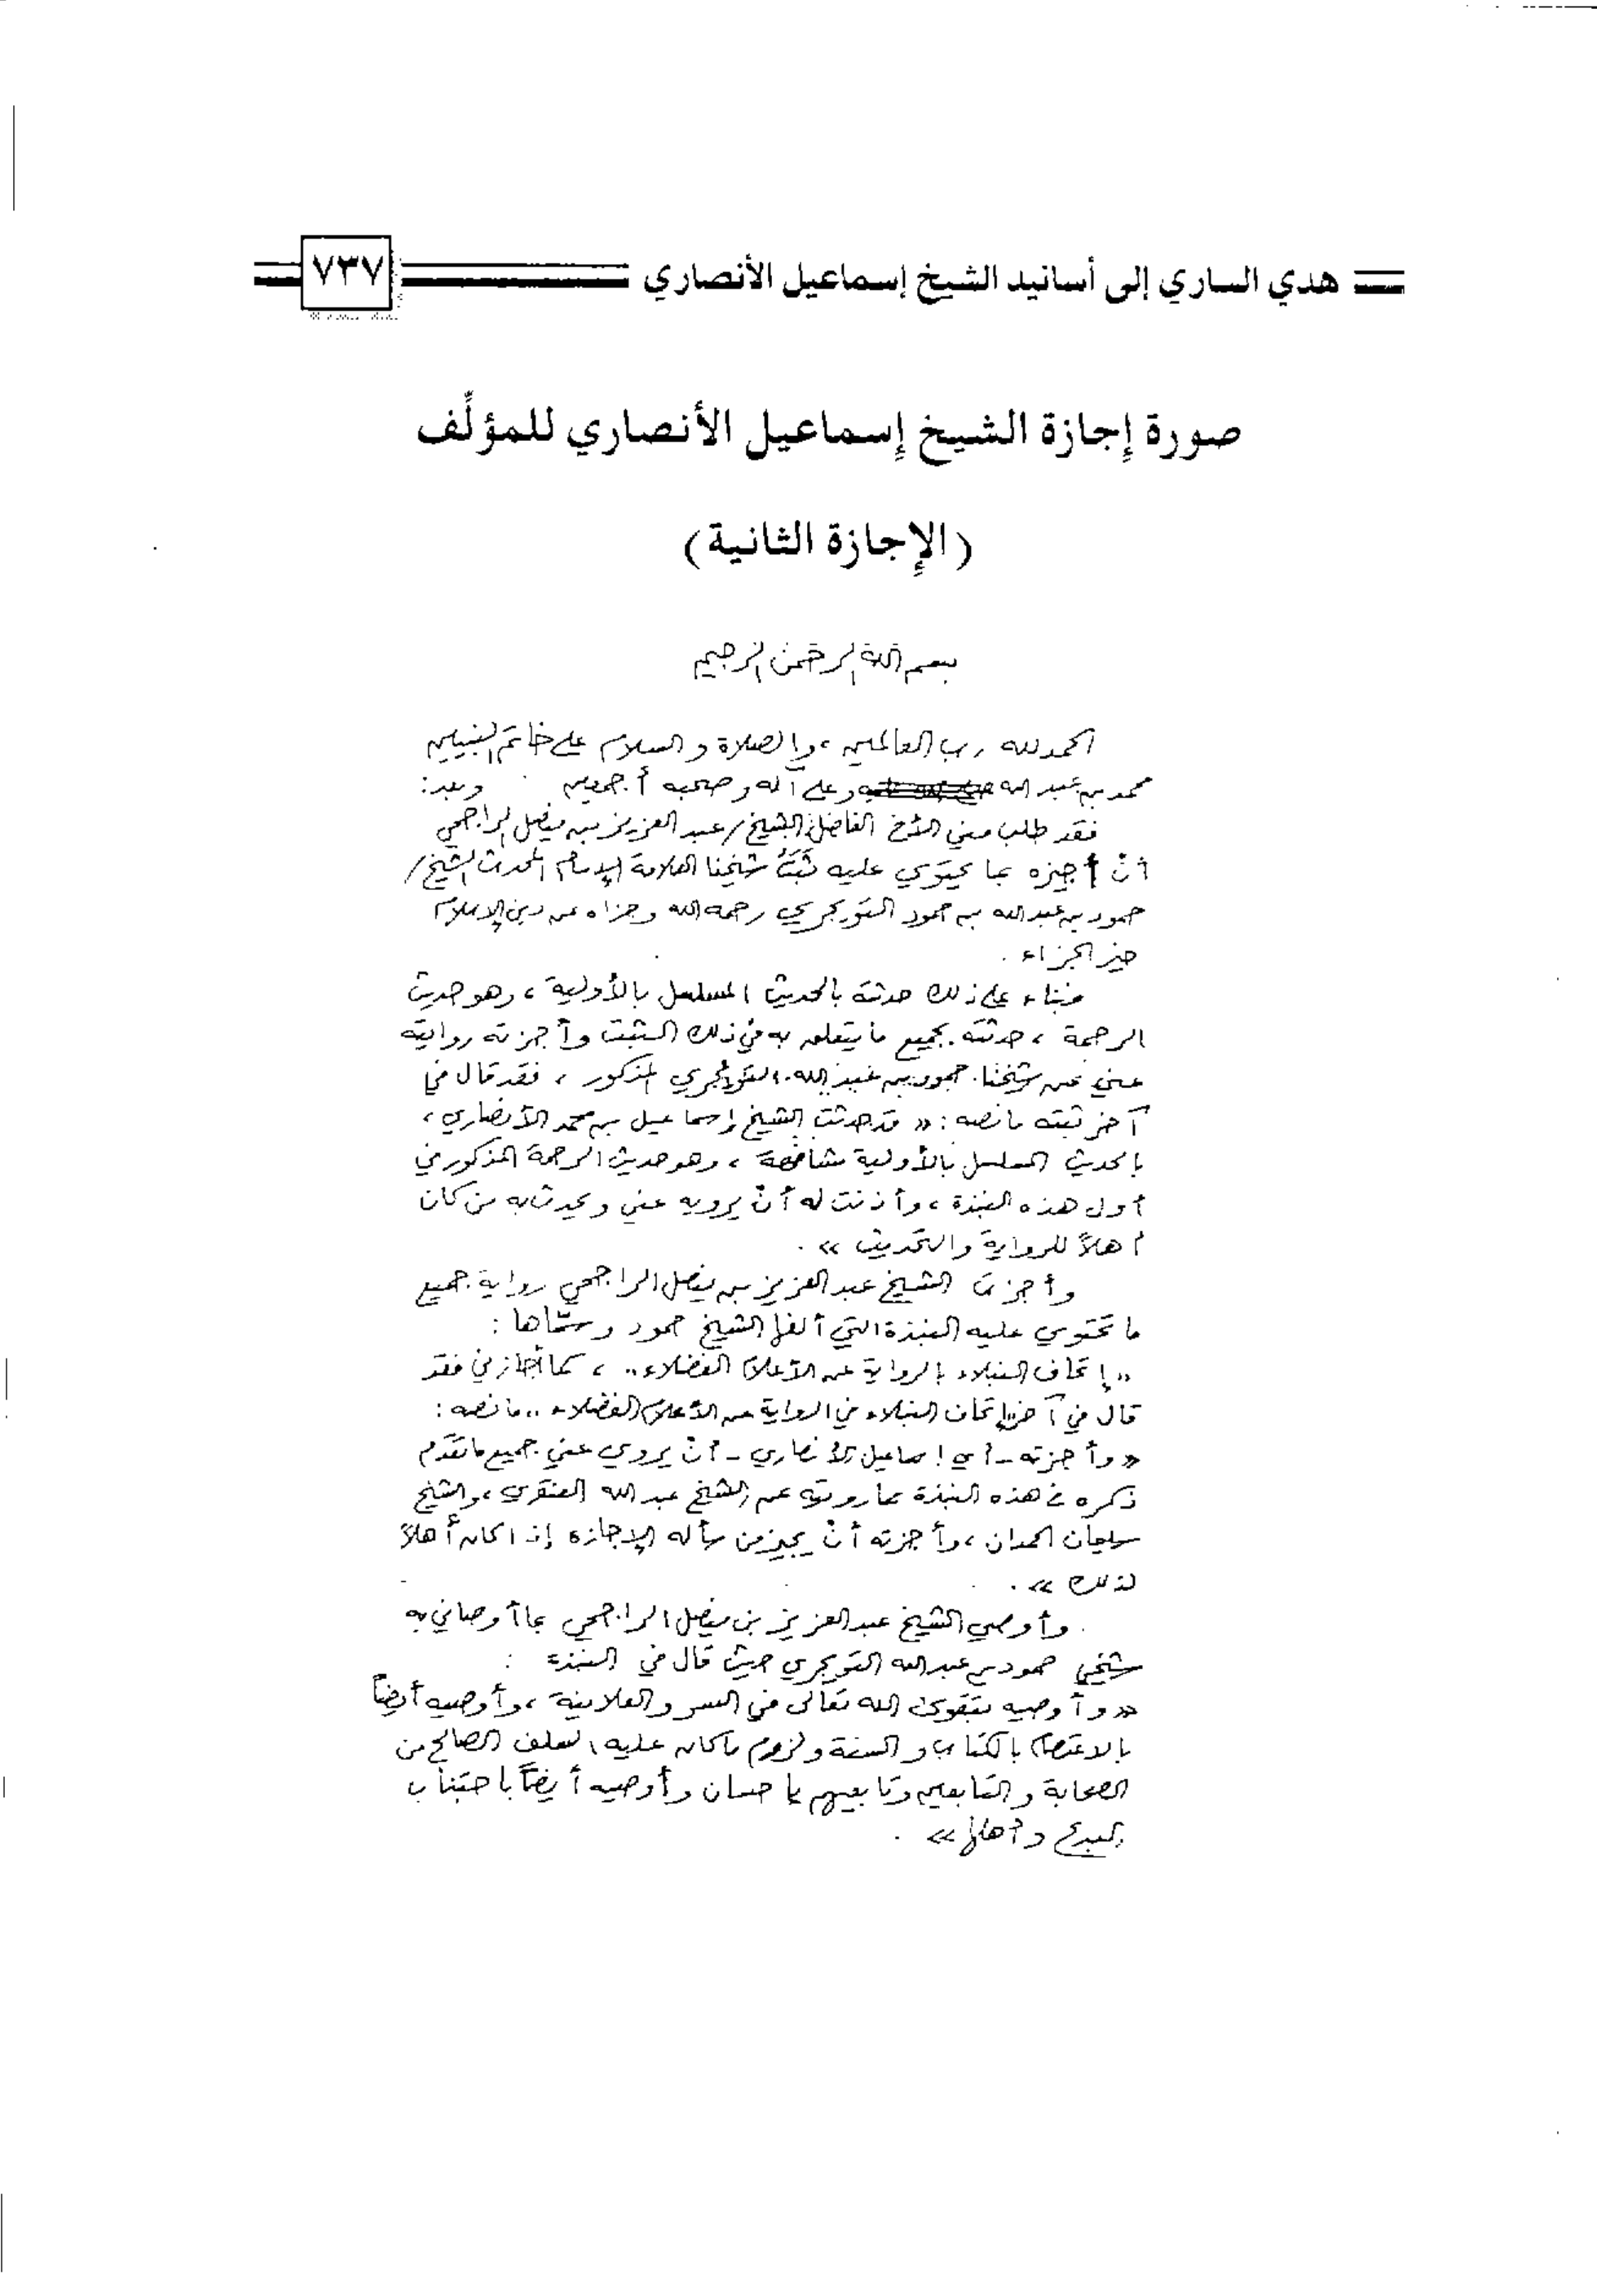 هدي الساري إلى أسانيد الشيخ إسماعيل الأنصاري ٧٣٧
صورة إجازة الشيخ إسماعيل الأنصاري للمؤلِّف
(الإجازة الثانية)
بسم الله الرحمن الرحيم
الحمد لله رب العالمين ، والصلاة والسلام على خاتم النبيين
محمد بن عبد الله وعلى آله وصحبه أجمعين وبعد :
فقد طلب مني الأخ الفاضل الشيخ / عبد العزيز بن فيصل الراجحي
أنْ أجيزه بما يحتوي عليه ثَبَتُ شيخنا العلامة الإمام المحدث الشيخ /
حمود بن عبد الله بن حمود التويجري رحمه الله وجزاه عن دين الإسلام
خير الجزاء .
فبناء على ذلك حدثته بالحديث المسلسل بالأولية ، وهو حديث
الرحمة ، حدثته بجميع ما يتعلق به في ذلك الثبت وأجزته روايته
عني عن شيخنا حمود بن عبد الله التويجري المذكور ، فقد قال في
آخر ثبته ما نصه : « قد حدثت الشيخ إسماعيل بن محمد الأنصاري ،
بالحديث المسلسل بالأولية مشافهة ، وهو حديث الرحمة المذكور في
أول هذه النبذة ، وأذنت له أنْ يرويه عني ويحدث به من كان
أهلاً للرواية والتحديث » .
وأجزت الشيخ عبد العزيز بن فيصل الراجحي رواية جميع
ما تحتوي عليه النبذة التي ألفها الشيخ حمود وسمّاها :
" إتحاف النبلاء بالرواية عن الأعلام الفضلاء " ، كما أجازني فقد
قال في آخر إتحاف النبلاء في الرواية عن الأعلام الفضلاء " ما نصه :
« وأجزته - أي إسماعيل الأنصاري - أنْ يروي عني جميع ما تقدم
ذكره في هذه النبذة مما رويته عن الشيخ عبد الله العنقري ، والشيخ
سليمان الحمدان ، وأجزته أنْ يجيز من سأله الإجازة إذا كان أهلاً
لذلك » .
وأوصي الشيخ عبد العزيز بن فيصل الراجحي بما أوصاني به
شيخي حمود بن عبد الله التويجري حيث قال في النبذة :
« وأوصيه بتقوى الله تعالى في السر والعلانية ، وأوصيه أيضاً
بالاعتصام بالكتاب والسنة ولزوم ما كان عليه السلف الصالح من
الصحابة والتابعين وتابعيهم بإحسان وأوصيه أيضاً باجتناب
البدع وأهلها » .